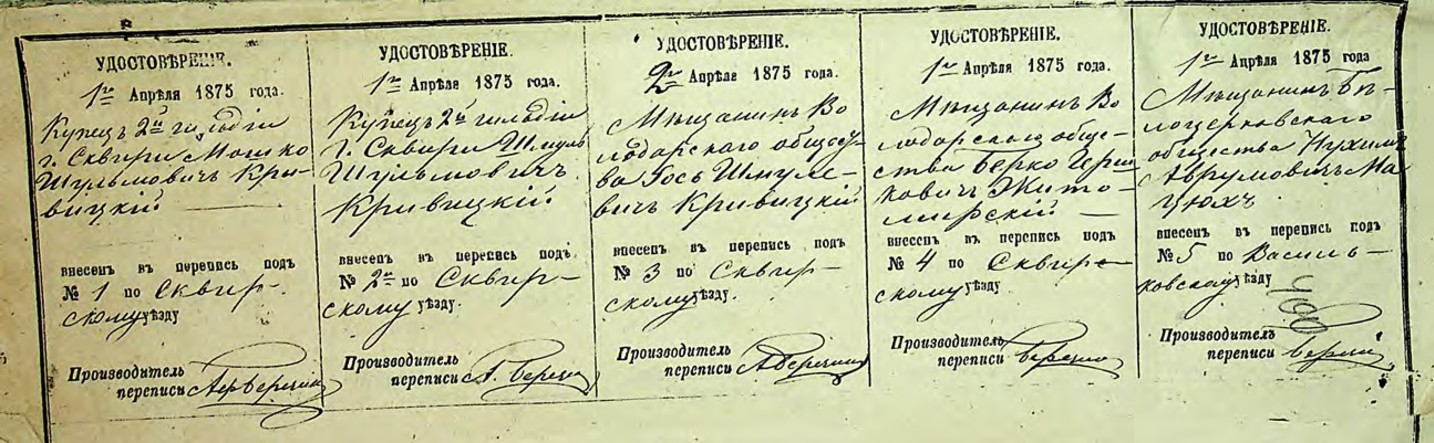 УДОСТОВѢРЕНІЕ.
1го Апрѣля 1875 года.
Купецъ 2й гильдіи
г. Сквири Мошко
Шульмовичъ Кры-
вицкій
внесенъ въ перепись подъ
№ 1 по Сквир-
скому уѣзду
Производитель
переписи
УДОСТОВѢРЕНІЕ.
1го Апрѣля 1875 года.
Купецъ 2й гильдіи
г. Сквири Шмуль
Шульмовичъ
Кривицкій
внесенъ въ перепись подъ
№ 2й по Сквир-
скому уѣзду.
Производитель
переписи
УДОСТОВѢРЕНІЕ.
2го Апрѣля 1875 года.
Мѣщанинъ Во
лодарского общест
ва Іось Шмуле-
вичъ Кривицкій
внесенъ въ перепись подъ
№ 3 по Сквир-
скому уѣзду.
Производитель
переписи
УДОСТОВѢРЕНІЕ.
1го Апрѣля 1875 года.
Мѣщанинъ Во
лодарского обще-
ства Берко Герш
ковичъ Жито-
мирскій
внесенъ въ перепись подъ
№ 4 по Сквирс-
кому уѣзду
Производитель
переписи Березин
УДОСТОВѢРЕНІЕ.
1го Апрѣля 1875 года
Мѣщанинъ Бѣ-
лоцерковского
общества Нухимъ
Аврумовичъ Ма
цюхъ
внесенъ въ перепись подъ
№ 5 по Василь-
ковскому уѣзду
Производитель
переписи